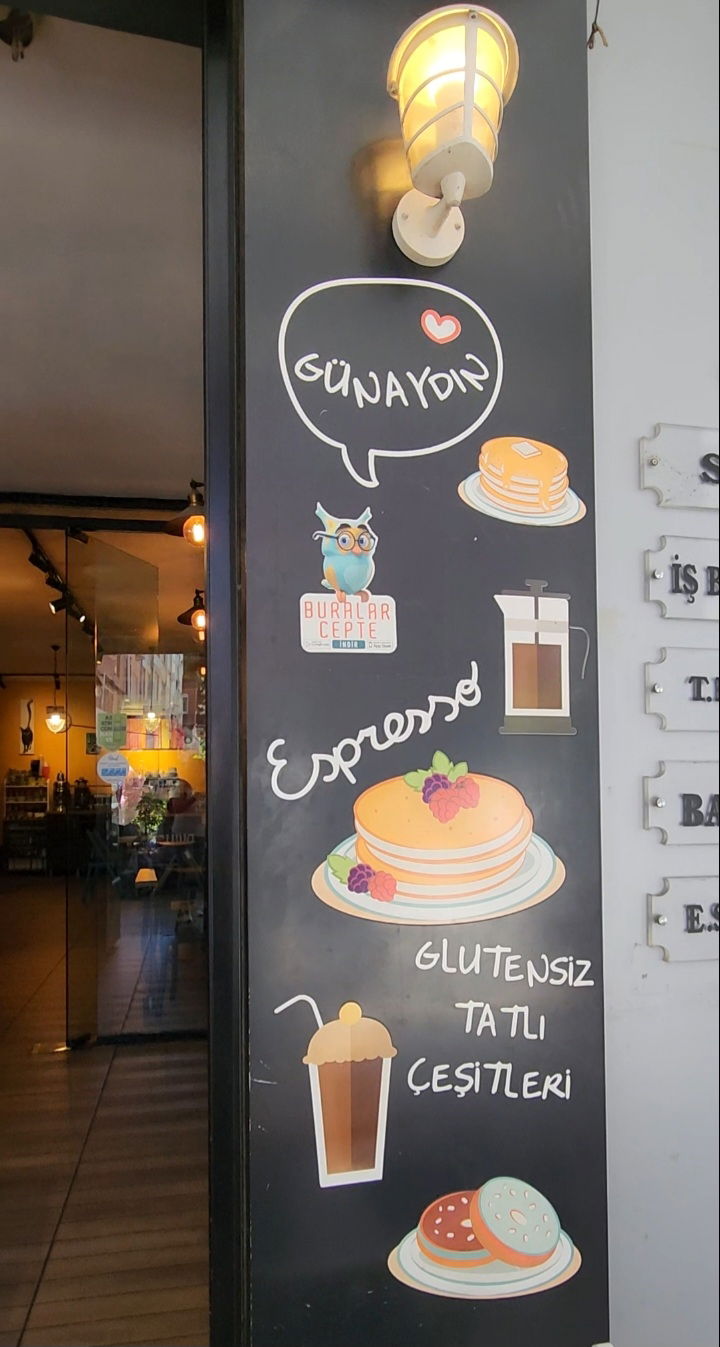 GÜNAYDIN
BURALAR
CEPTE
İNDİR
Espresso
GLUTENSİZ
TATLI
ÇEŞİTLERİ
S
İŞ B
T.
BA
E.S